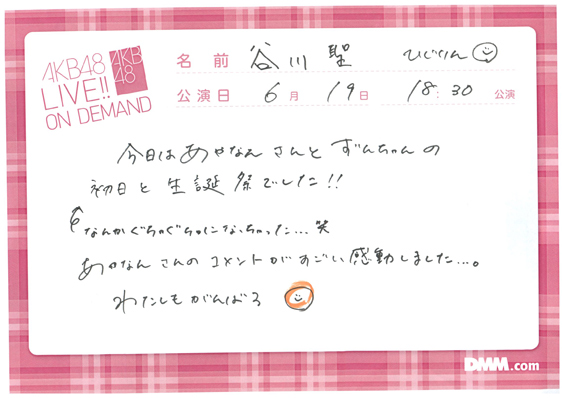 AKB48
LIVE!!
ON DEMAND
AKB
48
名前 谷川聖 ひじりん
公演日 6月19日 18:30 公演
今日はあやなんさんとずんちゃんの
初日と生誕祭でした!!
なんかぐちゃぐちゃになっちゃった…笑
あやなんさんのコメントがすごい感動しました…。
わたしもがんばろ
DMM.com